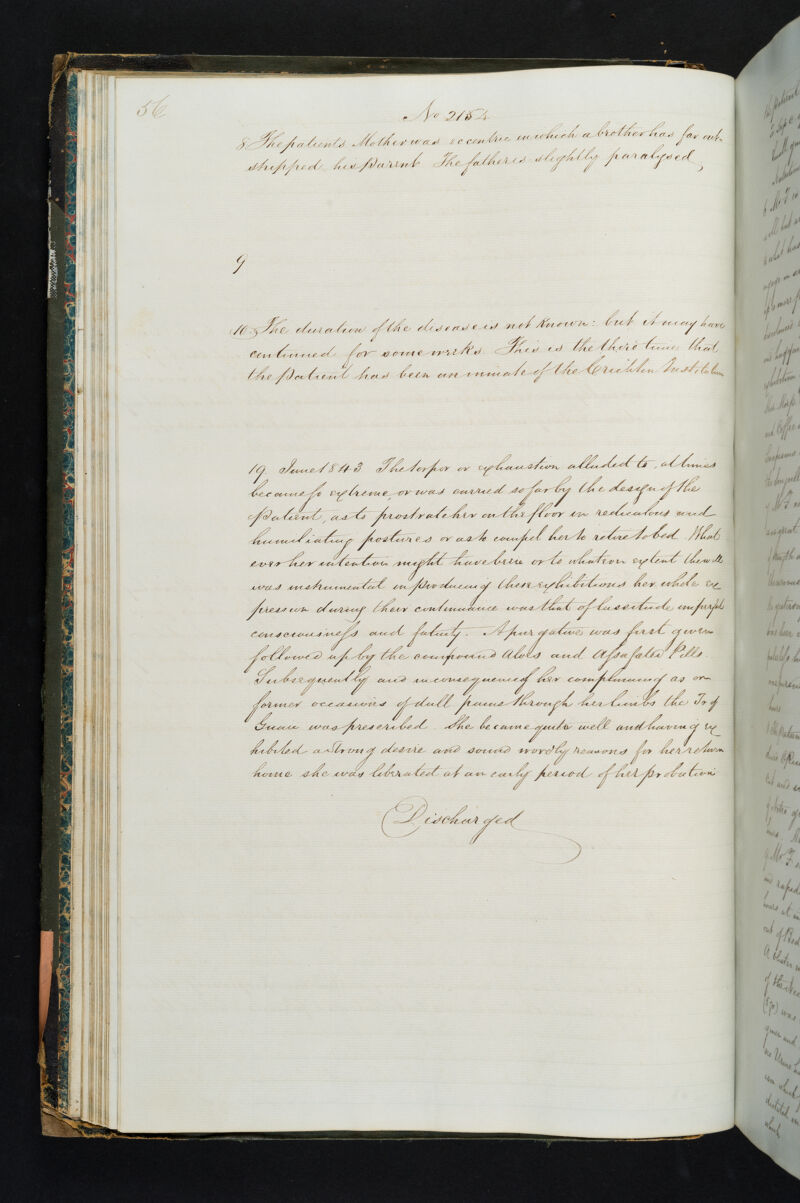 56
No 2154
8 The patients Mother was eccentric in which a brother has far out-
shipped his Parent The father is slightly paralysed,
9
10 The duration of the disease is not known: but it may have
continued for some weeks. This is the third time that
the Patient has been an inmate of the Crichton Institution
19 June 1843 The torpor or exhaustion alluded to, at times
became so extreme, or was carried so far by the design of the
Patient, as to prostrate her on the floor in rediculous and
humiliating postures or as to compel her to retire to bed. What
ever her intention might have been or to whatever extent the will
was instrumental in producing these exhibitions her whole ex
pression during their continuance was that of lassitude imperfect
consciousness and fatuity. A purgative was first given
followed up by the compound Aloes and Assafated Pills.
Subsequently and in consequence of her complaining as on
former occasions of dull pains through her limbs the Tr of
Guau was prescribed. She became quite well and having ex
hibited a strong desire and sound wordly reasons for her return
home she was liberated at an early period of her probation
Discharged